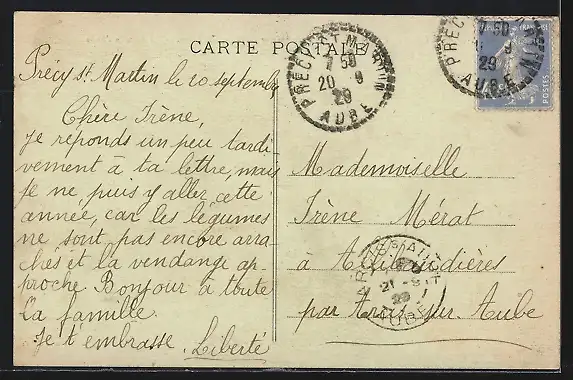 CARTE POSTALE
Précy St. Martin le 20 septembre
Chère Irène,
je réponds un peu tardi
vement à ta lettre, mais
je ne puis y aller cette
année, car les légumes
ne sont pas encore arra
chés et la vendange ap-
proche. Bonjour à toute
la famille.
Je t'embrasse. Liberté
PRECY-ST MARTIN
7 50
20 9
29
AUBE
PRECY
7 50
9
29
AUBE
POSTES
Mademoiselle
Irène Mérat
à
par Arcis sur Aube